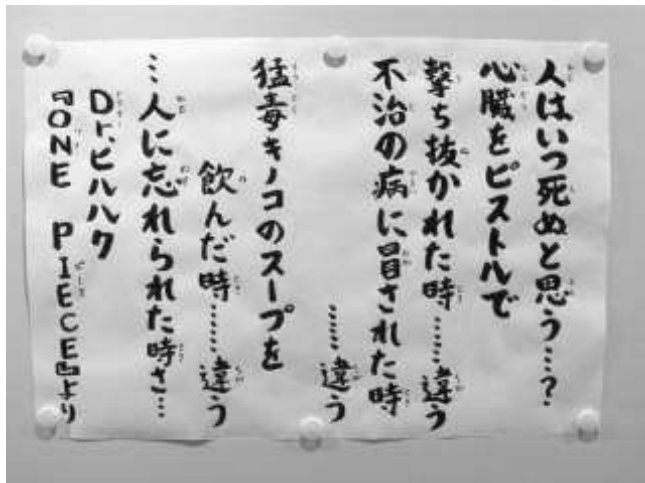 人はいつ死ぬと思う…?
心臓をピストルで
撃ち抜かれた時……違う
不治の病に冒された時
……違う
猛毒キノコのスープを
飲んだ時……違う
…人に忘れられた時さ…
Dr.ヒルルク
『ONE PIECE』より